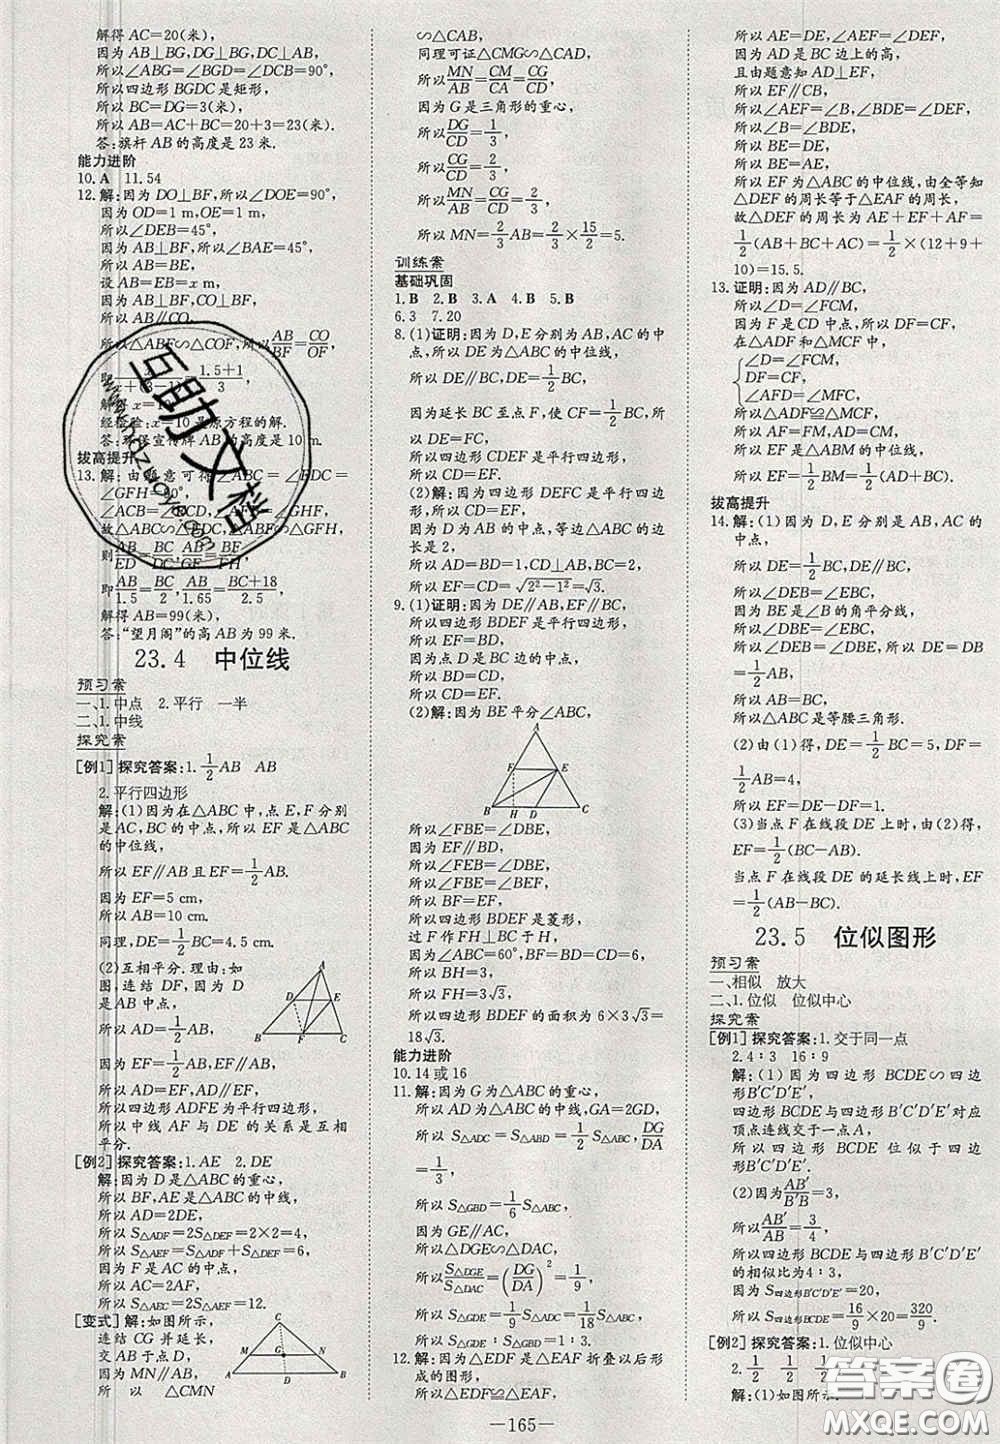 解得 AC=20(米),
因为 AB⊥BF,DG⊥BF,DC⊥AB,
所以∠ABG=∠BGD=∠DCB=90°,
所以四边形 BGDC 是矩形,
所以 BC=DG=3(米),
所以 AB=AC+BC=20+3=23(米).
答:旗杆 AB 的高度是 23 米.
能力进阶
10. A 11.54
12. 解:因为 DO⊥BF,所以∠DOE=90°,
因为 OD=1 m,OE=1 m,
所以∠DEB=45°,
因为 AB⊥BF,所以∠BAE=45°,
所以 AB=BE,
设 AB=EB=x m,
因为 AB⊥BF,CO⊥BF,
所以 AB∥CO,
所以△ABF∽△COF,所以AB/BF=CO/OF,
1.5+1/3,
解得 x=10.
经检验:x=10 是原方程的解.
答:环保宣传牌 AB 的高度是 10 m.
拔高提升
13. 解:由题意可得∠ABC=∠EDC=
∠GFH=90°,
∠ACB=∠ECD,∠AFB=∠GHF.
故△ABC∽△EDC,△ABF∽△GFH,
则AB/ED=BC/DC,AB/GF=BF/FH,
即AB/1.5=BC/2,AB/1.65=BC+18/2.5,
解得 AB=99(米),
答:“望月阁”的高 AB 为 99 米.
23.4 中位线
预习案
一、1.中点 2.平行 一半
二、1.中线
探究案
[例1] 探究答案:1.1/2AB AB
2.平行四边形
解:(1)因为在△ABC 中,点 E,F 分别
是 AC,BC 的中点,所以 EF 是△ABC
的中位线,
所以 EF∥AB 且 EF=1/2AB.
因为 EF=5 cm,
所以 AB=10 cm.
同理,DE=1/2BC=4.5 cm.
(2)互相平分.理由:如
图,连结 DF,因为 D 是
AB 中点,
所以 AD=1/2AB,
A
D E
B F C
因为 EF=1/2AB,EF∥AB,
所以 AD=EF,AD∥EF,
所以四边形 ADFE 是平行四边形,
所以中线 AF 与 DE 的关系是互相
平分.
[例2] 探究答案:1.AE 2.DE
解:因为 D 是△ABC 的重心,
所以 BF,AE 是△ABC 的中线,
所以 AD=2DE,
所以 S△ADF=2S△DEF=2×2=4,
所以 S△AEF=S△ADF+S△DEF=6,
所以 AC=2AF,
所以 S△AEC=2S△AEF=12.
[变式] 解:如图所示,
连结 CG 并延长,
交 AB 于点 D,
因为 MN∥AB,
所以 △CMN
C
M G N
A D B
∽△CAB,
同理可证△CMG∽△CAD,
所以MN/BA=CM/CA=CG/CD,
因为 G 是三角形的重心,
所以DG/CD=1/3,
所以CG/CD=2/3,
所以MN/BA=2/3,
所以 MN=2/3AB=2/3×15/2=5.
训练案
基础巩固
1. B 2. B 3. A 4. B 5. B
6.3 7.20
8. (1)证明:因为 D,E 分别为 AB,AC 的中
点,所以 DE 为△ABC 的中位线,
所以 DE∥BC,DE=1/2BC,
因为延长 BC 至点 F,使 CF=1/2BC,
所以 DE=FC,
所以四边形 CDEF 是平行四边形,
所以 CD=EF.
(2)解:因为四边形 DEFC 是平行四边形,
因为 D 为 AB 的中点,等边△ABC 的边
长是 2,
所以 AD=BD=1,CD⊥AB,BC=2,
所以 EF=CD=√2²-1²=√3.
9. (1)证明:因为 DE∥AB,EF∥BC,
所以四边形 BDEF 是平行四边形,
所以 DE=BF,BD=EF,
因为 DE=BF,
所以 CD=DE,
所以 BD=CD,
所以 CD=EF.
(2)解:因为 BE 平分∠ABC,
A
F E
B H D C
所以∠FBE=∠DBE,
因为 EF∥BD,
所以∠FEB=∠DBE,
所以∠FBE=∠FEB,
所以 BF=EF,
所以四边形 BDEF 是菱形,
过 F 作 FH⊥BC 于 H,
因为∠ABC=60°,BF=CD=6,
所以 BH=3,
所以 FH=3√3,
所以四边形 BDEF 的面积为 6×3√3=
18√3.
能力进阶
10. 14 或 16
11. 解:因为 G 为△ABC 的重心,
所以 AD 为△ABC 的中线,GA=2GD,
所以 S△ADC=S△ABD=1/2S△ABC,DG/DA
=1/3,
所以 S△GBD=1/6S△ABC,
因为 GE∥AC,
所以△DGE∽△DAC,
所以S△DGE/S△DAC=(DG/DA)²=1/9,
所以 S△GDE=1/9S△ADC=1/18S△ABC,
所以 S△GDE∶S△GBD=1∶3.
12. 解:因为△EDF 是△EAF 折叠以后形
成的图形,
所以△EDF≌△EAF,
所以 AE=DE,∠AEF=∠DEF,
因为 AD 是 BC 边上的高,
且由题意知 AD⊥EF,
所以 EF∥CB,
所以∠AEF=∠B,∠BDE=∠DEF,
所以∠B=∠BDE,
所以 BE=DE,
所以 EF 为△ABC 的中位线,由全等知
△DEF 的周长等于△EAF 的周长,
故△DEF 的周长为 AE+EF+AF=
1/2(AB+BC+AC)=1/2×(12+9+
10)=15.5.
13. 证明:因为 AD∥BC,
所以∠D=∠FCM,
因为 F 是 CD 中点,所以 DF=CF,
在△ADF 和△MCF 中,
∠D=∠FCM,
DF=CF,
∠AFD=∠MFC,
所以△ADF≌△MCF,
所以 AF=FM,AD=CM,
所以 EF 是△ABM 的中位线,
所以 EF=1/2BM=1/2(AD+BC).
拔高提升
14. 解:(1)因为 D,E 分别是 AB,AC
的中点,
所以 DE∥BC,DE=1/2BC,
因为 BE 是∠ABC 的角平分线,
所以∠DBE=∠EBC,
所以∠DBE=∠DEB,
所以 DE=DB=1/2AB,
因为 DE=1/2BC,
所以 AB=BC,
所以△ABC 是等腰三角形.
(2)由(1)得,DE=1/2BC=5,DF=
1/2AB=4,
所以 EF=DE-DF=1.
(3)当点 F 在线段 DE 上时,由(2)得,
EF=1/2(BC-AB).
当点 F 在线段 DE 的延长线上时,EF
=1/2(AB-BC).
23.5 位似图形
预习案
一、相似 放大
二、1.位似 位似中心
探究案
[例1] 探究答案:1.交于同一点
2.4∶3 16∶9
解:(1)因为四边形 BCDE∽四边形
B′C′D′E′,
四边形 BCDE 与四边形 B′C′D′E′对应
顶点连线交于一点 A,
所以四边形 BCDE 位似于四边形
B′C′D′E′.
(2)因为AB′/B′B=3,
所以AB′/AB=3/4,
所以四边形 BCDE 与四边形 B′C′D′E′
的相似比为 4∶3,
因为 S四边形BCDE=20,
所以 S四边形BCDE=16/9×20=320/9.
[例2] 探究答案:1.位似中心
2. 1/2 1/2 1/2 1/2
解:(1)如图所示.
—165—
互助文档
www.hdzuoye.com
答案圈
MXQE.COM